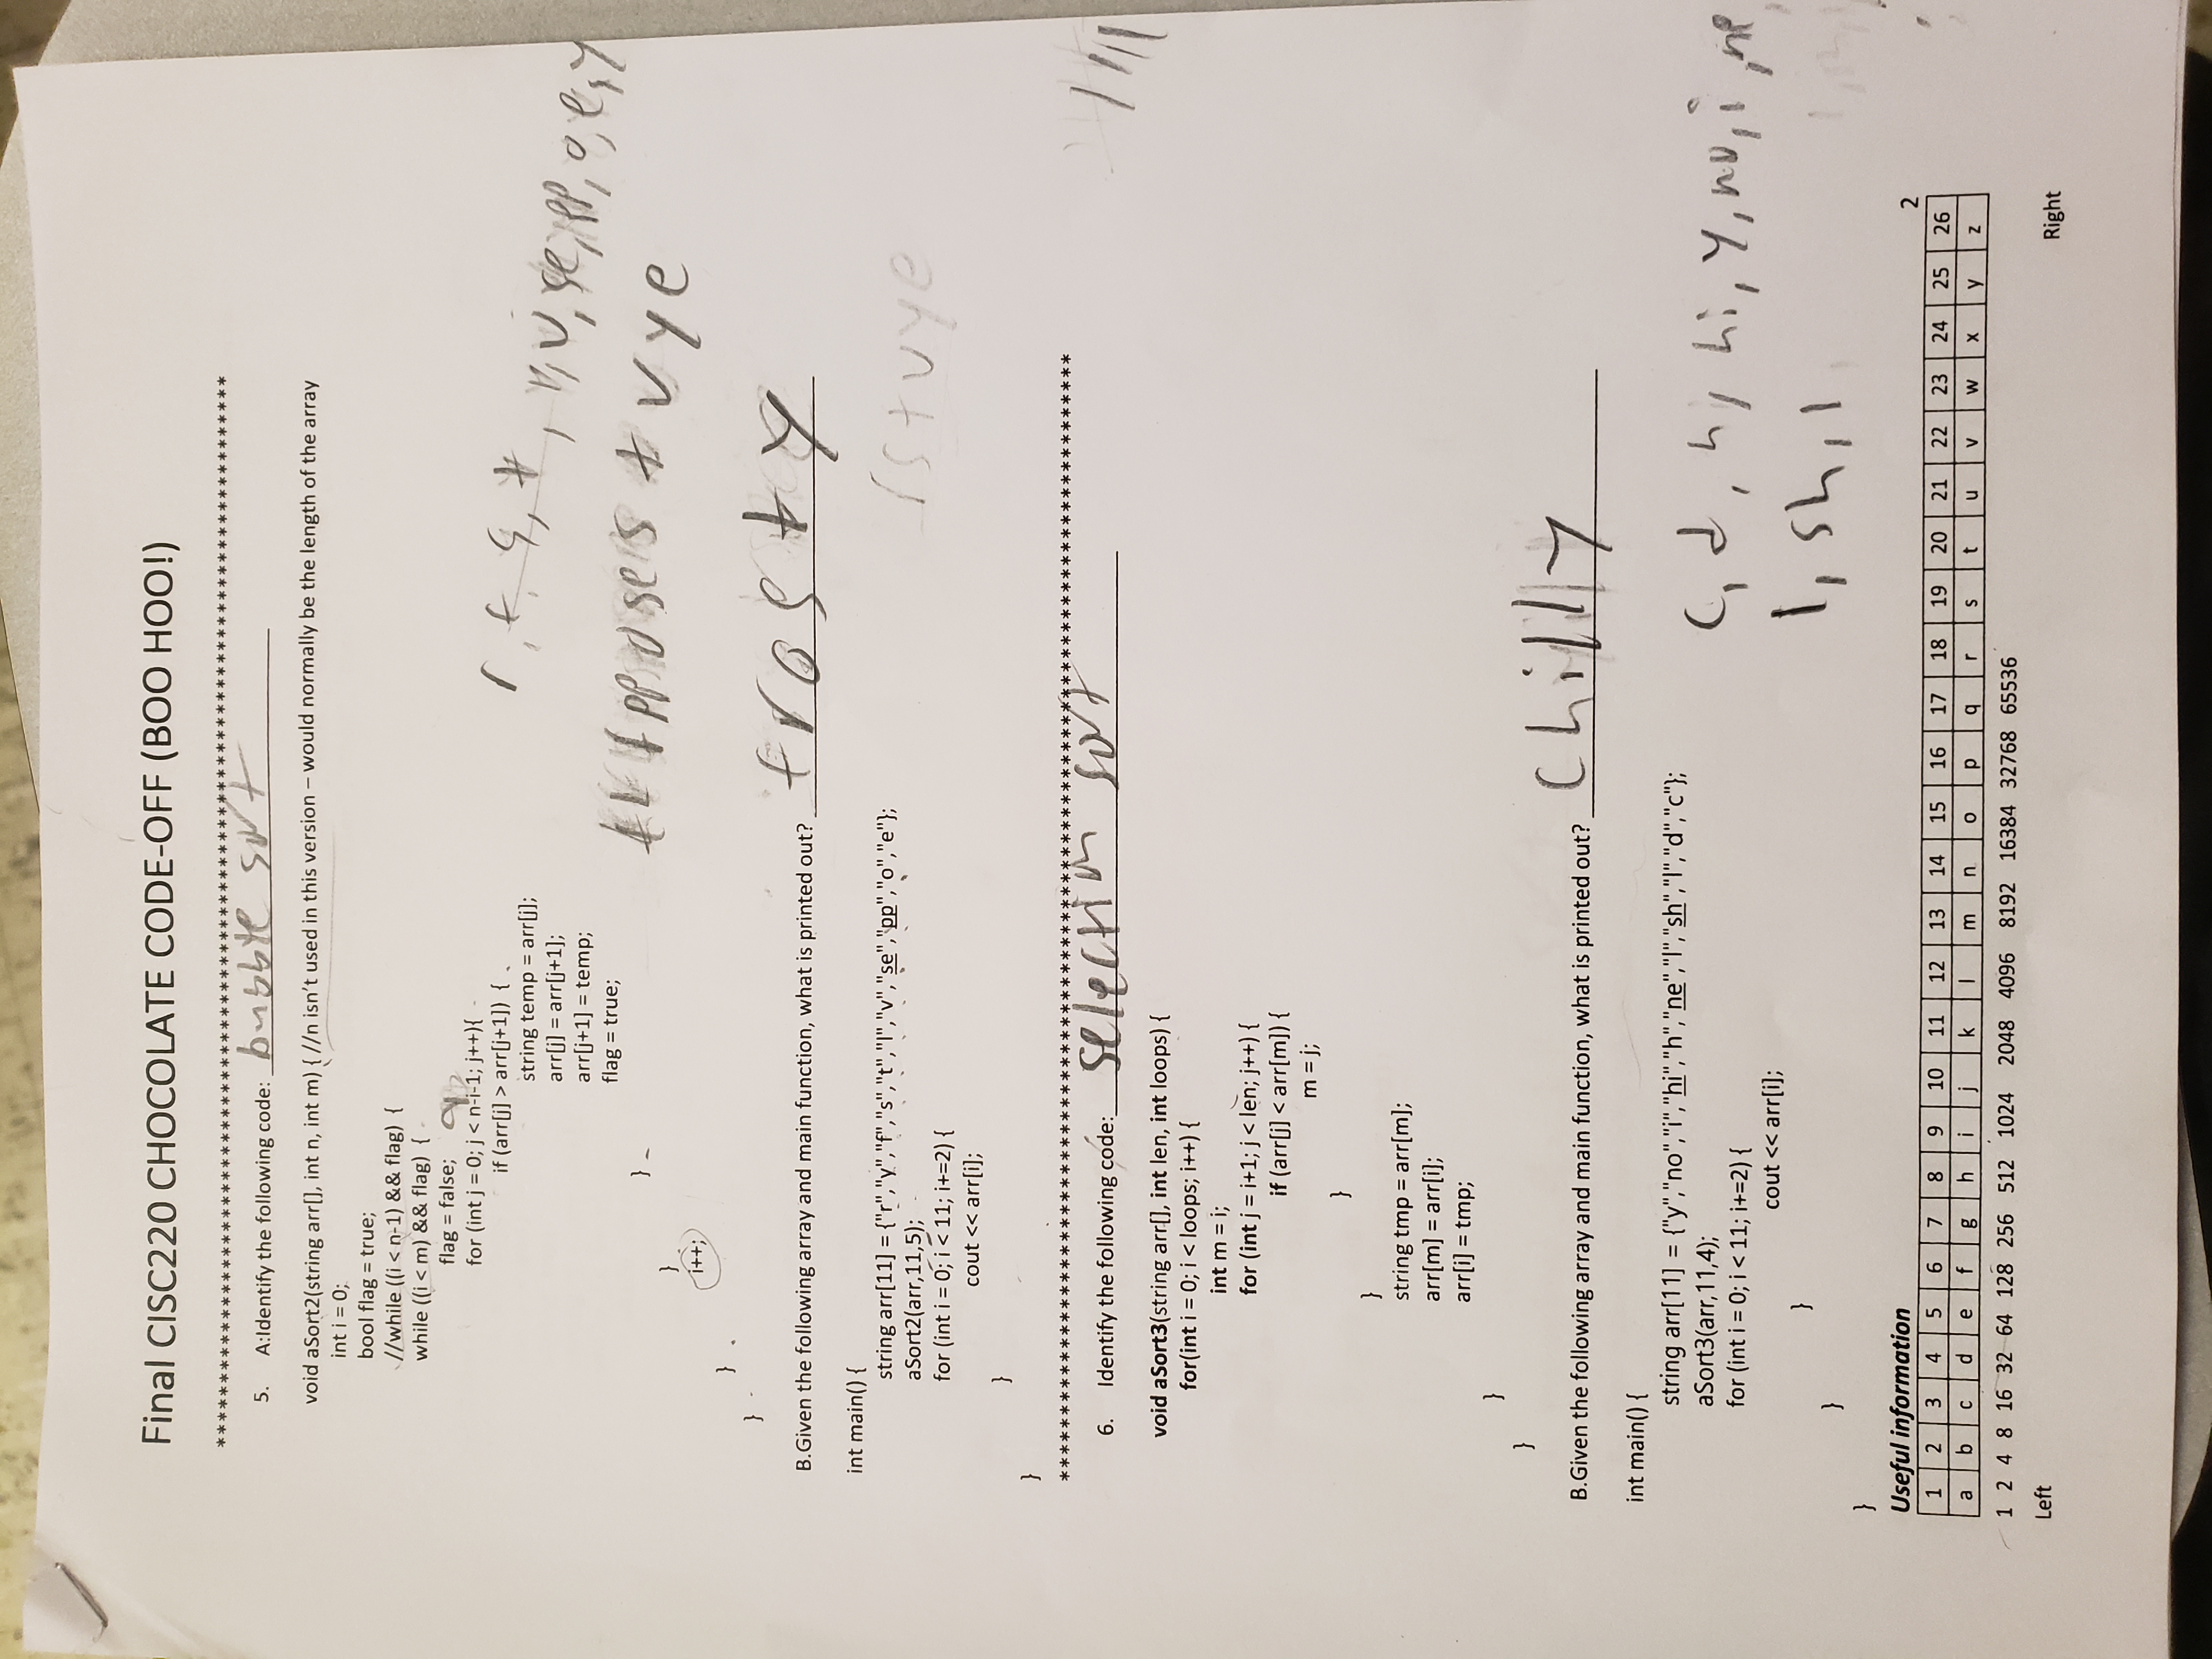 Final CISC220 CHOCOLATE CODE-OFF (BOO HOO!)
*************************************************************************************
5. A:Identify the following code: bubble sort
void aSort2(string arr[], int n, int m) { //n isn't used in this version – would normally be the length of the array
int i = 0;
bool flag = true;
//while ((i < n-1) && flag) {
while ((i < m) && flag) {
flag = false;
for (int j = 0; j < n-i-1; j++){
if (arr[j] > arr[j+1]) {
string temp = arr[j];
arr[j] = arr[j+1];
arr[j+1] = temp;
flag = true;
}
}
i++;
}
}
r, f, s, t, v, se, pp, o, e, y
pp o se s t v y e
B.Given the following array and main function, what is printed out? frosty
int main() {
string arr[11] = {"r","y","f","s","t","l","v","se","pp","o","e"};
aSort2(arr,11,5);
for (int i = 0; i < 11; i+=2) {
cout << arr[i];
}
}
r s t v y e
*************************************************************************************
6. Identify the following code: selection sort
void aSort3(string arr[], int len, int loops) {
for(int i = 0; i < loops; i++) {
int m = i;
for (int j = i+1; j < len; j++) {
if (arr[j] < arr[m]) {
m = j;
}
}
string tmp = arr[m];
arr[m] = arr[i];
arr[i] = tmp;
}
}
B.Given the following array and main function, what is printed out? chilly
int main() {
string arr[11] = {"y","no","i","hi","h","ne","l","sh","l","d","c"};
aSort3(arr,11,4);
for (int i = 0; i < 11; i+=2) {
cout << arr[i];
}
}
}
c, d, h, hi, y, no, i, ne,
l, sh, l
Useful information
2
1 2 3 4 5 6 7 8 9 10 11 12 13 14 15 16 17 18 19 20 21 22 23 24 25 26
a b c d e f g h i j k l m n o p q r s t u v w x y z
1 2 4 8 16 32 64 128 256 512 1024 2048 4096 8192 16384 32768 65536
Left Right